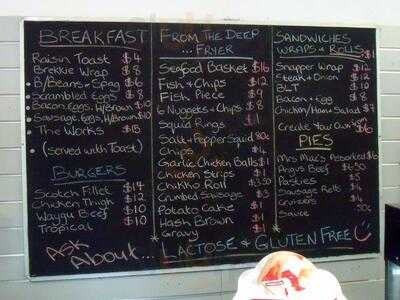 BREAKFAST
Raisin Toast $4
Brekkie Wrap $8
B/Beans + Epag $6
Scrambled Eggs $8
Bacon, Eggs, H/Brown $10
Sausage, Eggs, H/Brown $10
The Works $15
(served with Toast)
BURGERS
Scotch Fillet $14
Chicken Thigh $12
Wagyu Beef $10
Tropical $10
FROM THE DEEP
... FRYER
Seafood Basket $16
Fish + Chips $12
Fish Piece $9
6 Nuggets + Chips $8
Squid Rings $1
Salt + Pepper Squid 80c
Chips $4
Garlic Chicken Balls $1
Chicken Strips $1
Chikko Roll $3.50
Crumbed Sausage $3
Potato Cake $1
Hash Brown $1
Gravy $1
SANDWICHES
WRAPS + ROLLS $1
Snapper Wrap $12
Steak + Onion $12
BLT $10
Bacon + Egg $8
Chicken/Ham + Salad $7
Create Your Own $6
PIES
Mrs Mac's Assorted $6
Angus Beef
Pasties $5
Sausage Rolls $4
Cruizers $4
Sauce 50c
ASK
ABOUT...
LACTOSE & GLUTEN FREE